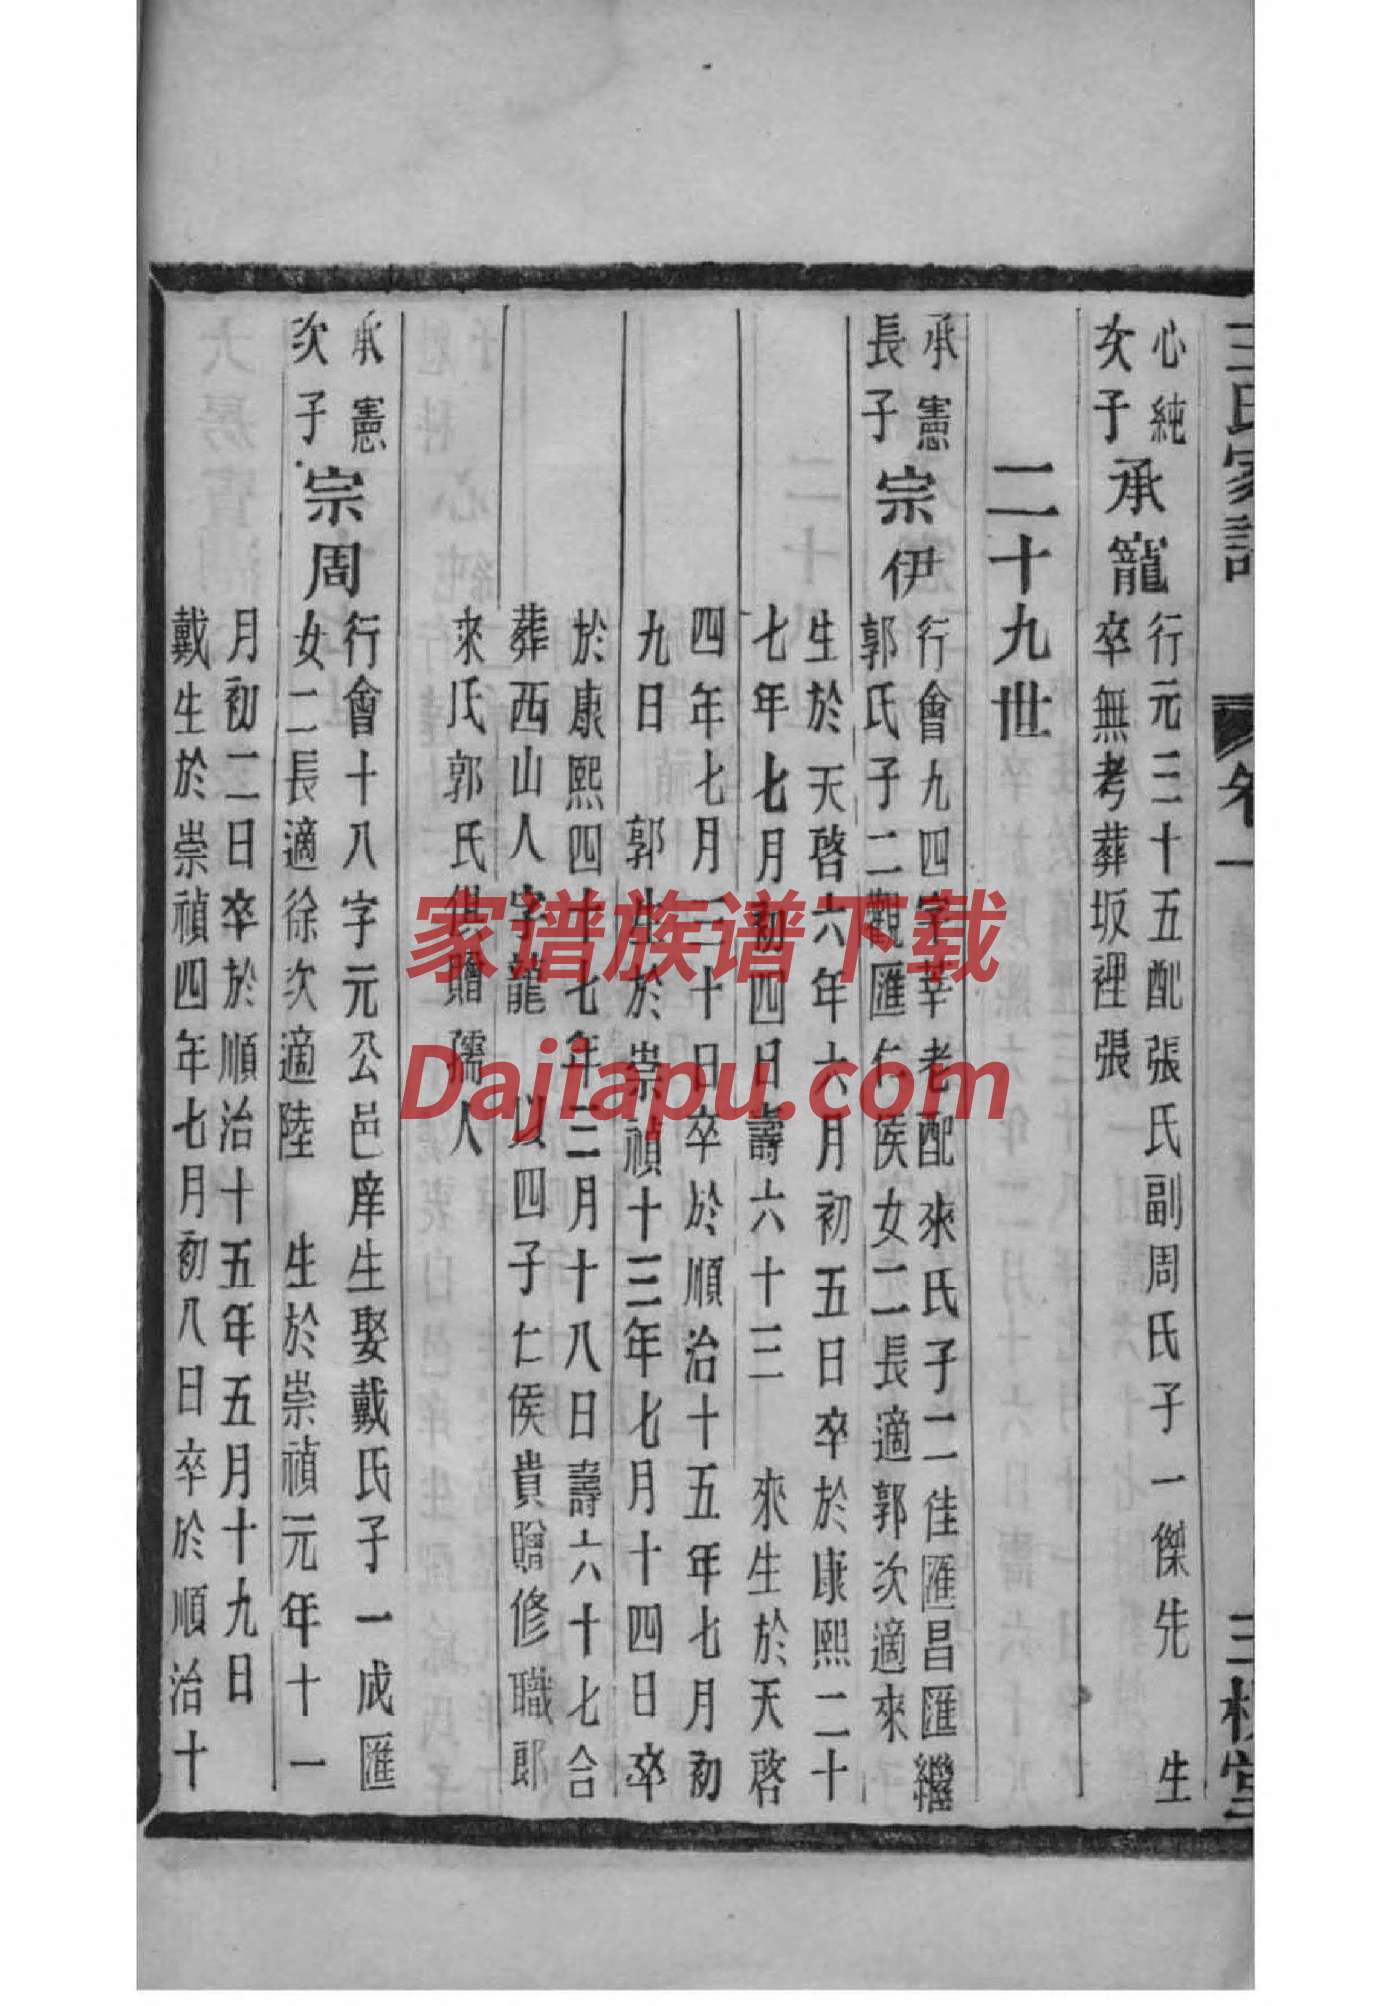 王氏家譜 卷一 三槐堂
心純
次子
承寵
行元三十五配張氏副周氏子一傑先 生
卒無考葬坂裡張
二十九世
承憲
長子
宗伊
行會九四字莘老配來氏子二佳匯昌匯繼
郭氏子二觀匯仁侯女二長適郭次適來
生於天啓六年六月初五日卒於康熙二十
七年七月初四日壽六十三 來生於天啓
四年七月三十日卒於順治十五年七月初
九日 郭生於崇禎十三年七月十四日卒
於康熙四十七年三月十八日壽六十七合
葬西山人字龍 以四子仁侯貴贈修職郎
來氏郭氏俱贈孺人
承憲
次子
宗周
行會十八字元公邑庠生娶戴氏子一成匯
女二長適徐次適陸 生於崇禎元年十一
月初二日卒於順治十五年五月十九日
戴生於崇禎四年七月初八日卒於順治十
家谱族谱下载
Dajiapu.com